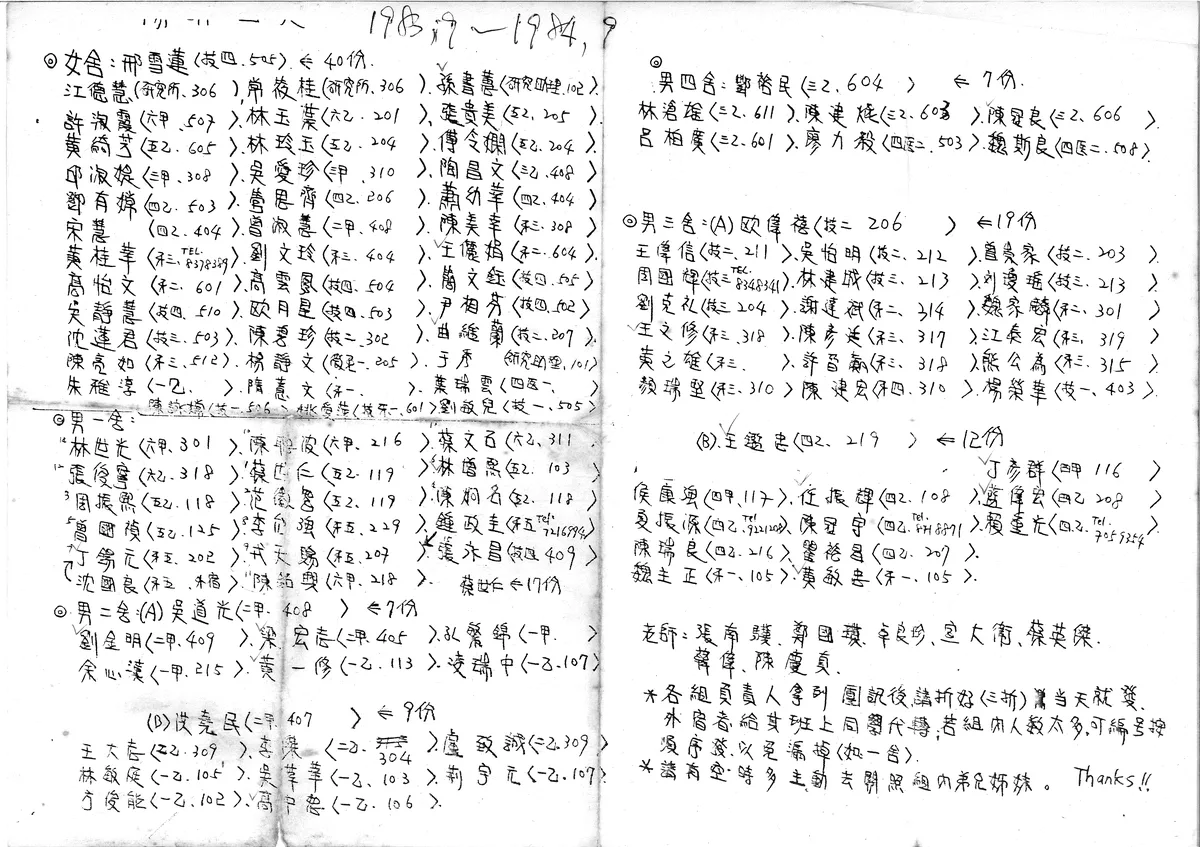 1983.9～1984.9
◎女舍:邢雪蓮(技四.505).←40份.
江德慧(研究所.306),常筱桂(研究所.306).孫書蕙(研究助理.102).
許淑霞(六甲.507).林玉葉(六乙.201).張貴美(五乙.205).
黃綺芳(五乙.605).林玲玉(五乙.204).傅令嫻(五乙.204).
邱淑媞(三甲.308).吳愛珍(三甲.310).陶昌文(三乙.408)
鄧有嫦(四乙.503).曾思齊(四乙.206).蕭幼華(四乙.404)
宋慧(四乙.404).曾淑蕙(二甲.408).陳美幸(禾三.308)
黃桂華(禾三.TEL.8378389).劉文玲(禾三.404).王儷娟(禾二.604).
高怡文(禾二.601).高雲鳳(技四.504).蘭文鈺(技四.505)
吳靜慧(技四.510).欧月星(技四.503).尹相芬(技四.502)
沈蓮君(技三.503).陳碧珍(技二.302).曲維蘭(技二.207)
陳亮如(禾三.512).楊靜文(205).于秀(研究助理.101)
朱雅淳(一乙.).隋蕙文(禾一.).葉瑞雲(四医一.)
陳詠(技一.506).姚愛萍(技禾一.601)劉敏兒(技一.505)
◎男一舍:
林世光(六甲.301).陳俊(六甲.216).蔡文石(六乙.311
張俊寧(六乙.318).蔡世仁(五乙.119).林曾熙(五乙.103
周振熙(五乙.118).范(五乙.119).陳炯名(五乙.118)
曾國禎(五乙.125).李強(禾五.229).鍾政圭(禾五Tel.7216994)
丁錫元(禾五.202).武天賜(禾五.207).張永昌(技四.409)
沈國良(禾五.外宿).陳興(六甲.218).蔡世仁←17份
◎男二舍:(A)吳道光(二甲.408)←7份
劉金明(二甲.409).梁宏志(二甲.405).錦(一甲.)
余心漢(一甲.215).黃一修(一乙.113).凌瑞中(一乙.107)
(B)堯民(二甲.407)←9份
王大志(二乙.309).李(二乙.304).盧致誠(二乙.309)
林敏(一乙.105).吳華(一乙.103).荊宇元(一乙.107).
俊能(一乙.102).高中惠(一乙.106).
◎男四舍:鄭啓民(三乙.604)←7份.
林滄雄(三乙.611).陳建煖(三乙.603).陳冠良(三乙.606).
呂柏廣(三乙.601).廖力毅(四医二.503).魏斯良(四医二.508).
◎男三舍:(A)欧偉禧(技二206)←19份
王偉信(技二.211).吳怡明(技二.212).首豪家(技二.203)
周國輝(技三TEL.8348341).林建成(技三.213).刘慶瑤(技三.213)
劉克礼(技三204).謝建斌(禾二.314).魏家麟(禾二.301)
王文修(禾三.318).陳彥廷(禾三.317).江奐宏(禾三.319)
黃之雄(禾三.).許晋嬴(禾三.318).熊公為(禾三.315)
顏瑞堅(禾三.310).陳建宏(禾四.310).楊榮華(技一.403)
(B).王鑑忠(四乙.219)←12份
丁彥群(四甲116)
侯重鴻(四甲.117).任振輝(四乙.108).盧偉宏(四乙208
夏振源(四乙Tel.).陳冠宇(四乙.Tel.).賴重光(四乙.Tel.7059354)
陳瑞良(四乙.216).瞿啓昌(四乙.207).
魏主正(禾一.105).黃敏忠(禾一.105).
老師:張南驥、鄭國琪、卓良珍、定大衛、蔡英傑.
韓偉、陳慶貞.
*各組負責人拿到團訊後,請折好(三折)當天就發.
外宿者給其班上同學代轉,若組內人數太多,可編号按
順序發.以免漏掉(如一舍).
*請有空時多主動去關照組內弟兄姊妹。Thanks!!